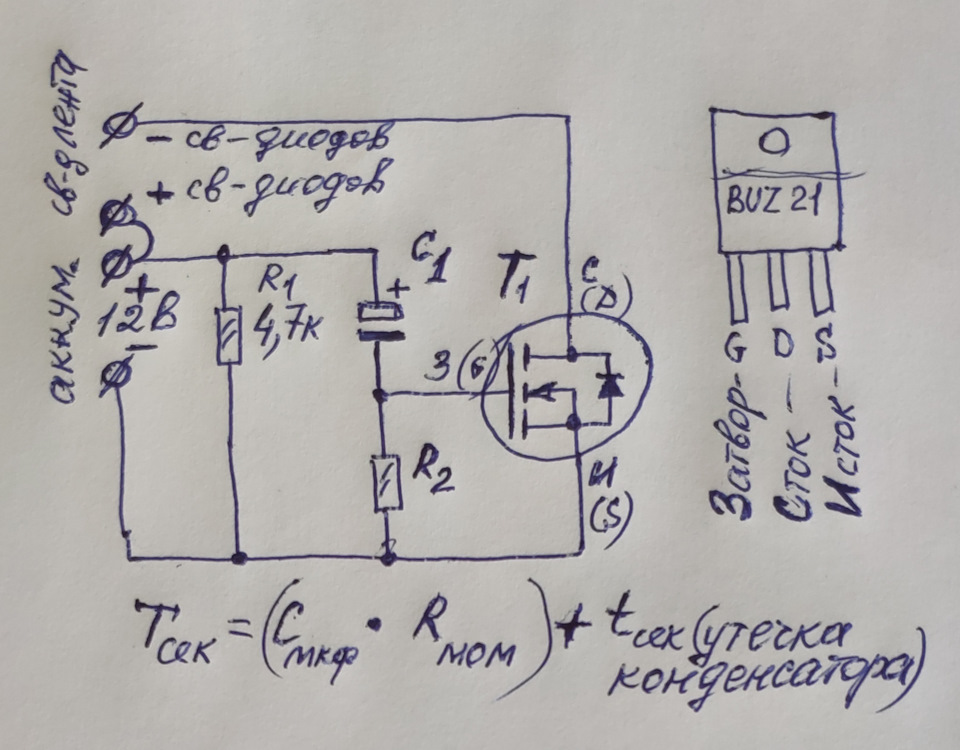 св-д лента
- св-диодов
+ св-диодов
аккум.
+
12В
-
R1
4,7к
C1
+
R2
T1
С
(D)
З (G)
И
(S)
BUZ 21
Затвор - G
Сток - D
Исток - S
Tсек = (Cмкф · Rмом) + tсек (утечка
конденсатора)